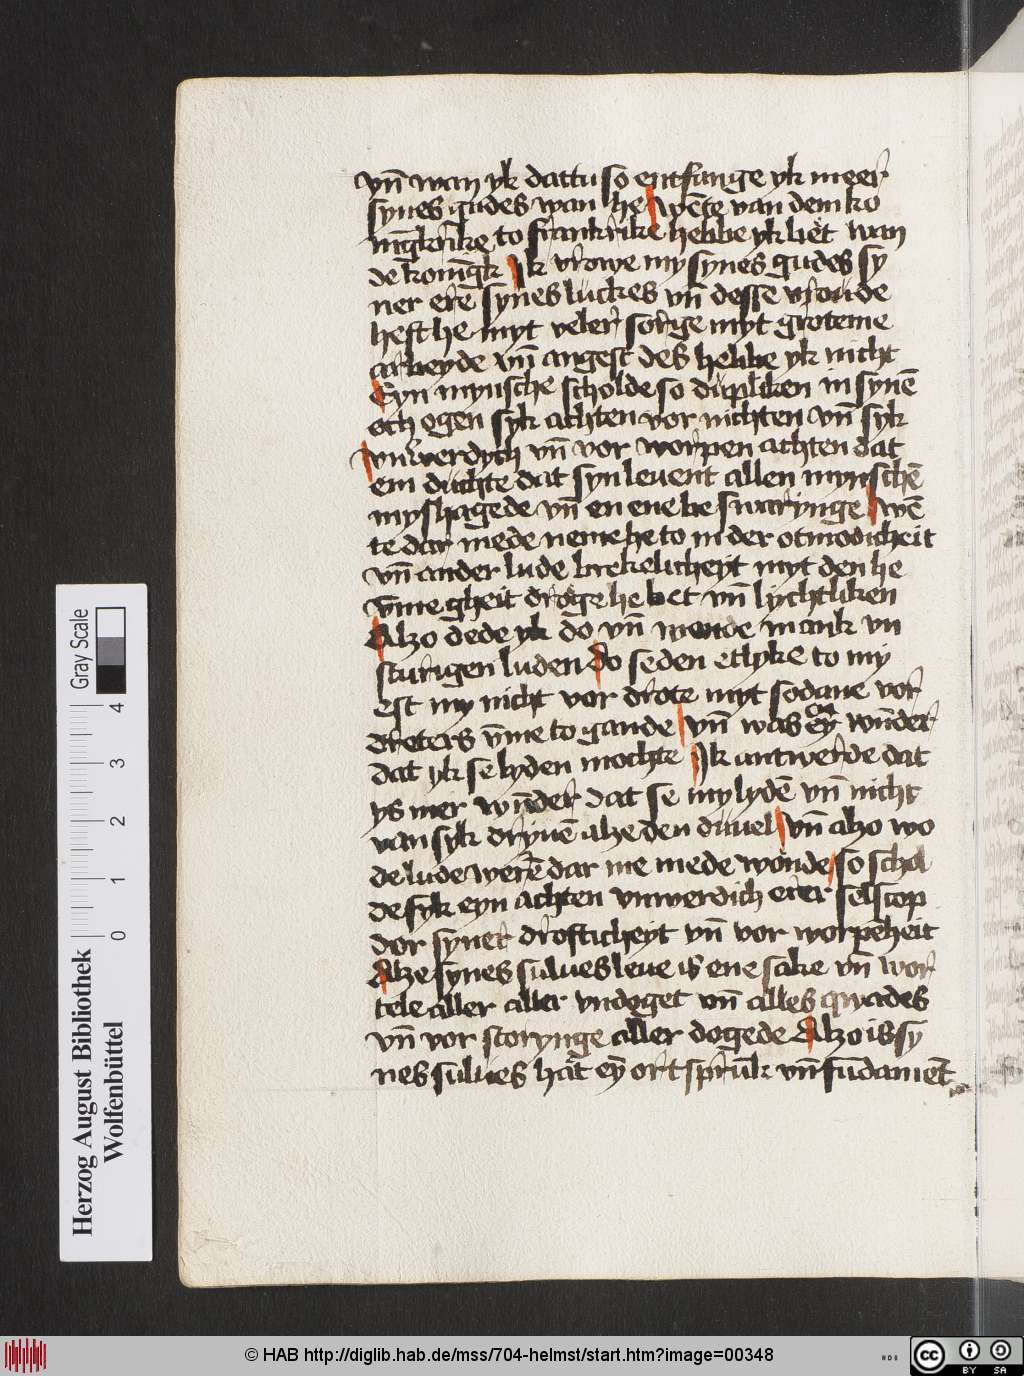 vn̄ wan yk dattu so entfange yk meer
synes gudes wan he wēte van dem ko
nīgkrike to frankrike hebbe yk het wan
de konīgk Ik vrowe my synes gudes sy
ner ere synes luckes vn̄ desse vroude
heft he myt veler sorge myt groteme
arbeyde vn̄ angest des hebbe yk nicht
Eyn mynsche scholde so dūpliken in synē
ogen syk achten vor nichten vn̄ syk
vnwerdych vn̄ vor worpen achten dat
em duchte dat syn levent allen mynschē
myshagede vn̄ en ene be swarynge wē
te dar mede neme he to in der otmodicheit
vn̄ ander lude brekelicheyt myt den he
v̄me gheit droge he bet vn̄ lychtliken
Alzo dede yk do vn̄ wonde mank vn
sturigen luden do seden etlyke to my
est my nicht vor drote myt sodane vor
dreters v̄me to gande vn̄ was ey wn̄der
dat yk se lyden mochte Ik antwerde dat
ys mer wn̄der dat se my lydē vn̄ nicht
van syk dryuē alze den duuel vn̄ alzo wo
de lude werē dar me mede wonde so schol
de syk eyn achten vnwerdich erer selscop
dor syner drofticheyt vn̄ vor worpēheit
Alze synes sulues leue is ene sake vn̄ wor
tele aller aller vndoget vn̄ alles quades
vn̄ vor storynge aller dogede Alzo is sy
nes sulues hat ey ort sprūk vn̄ fūdamēt
Herzog August Bibliothek
Wolfenbüttel
0 1 2 3 4
Gray Scale
© HAB http://diglib.hab.de/mss/704-helmst/start.htm?image=00348
HAB
cc BY SA